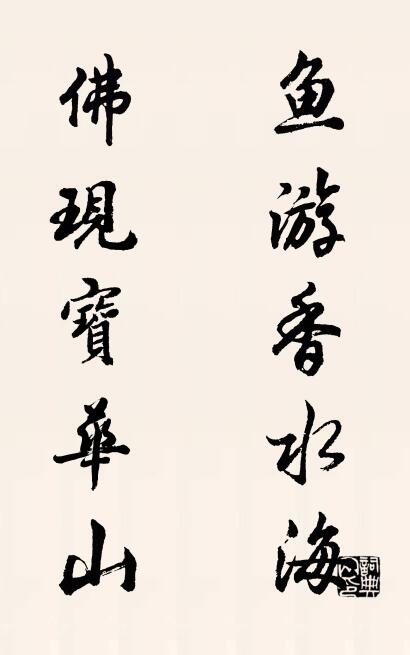 鱼游香水海
佛現寶華山